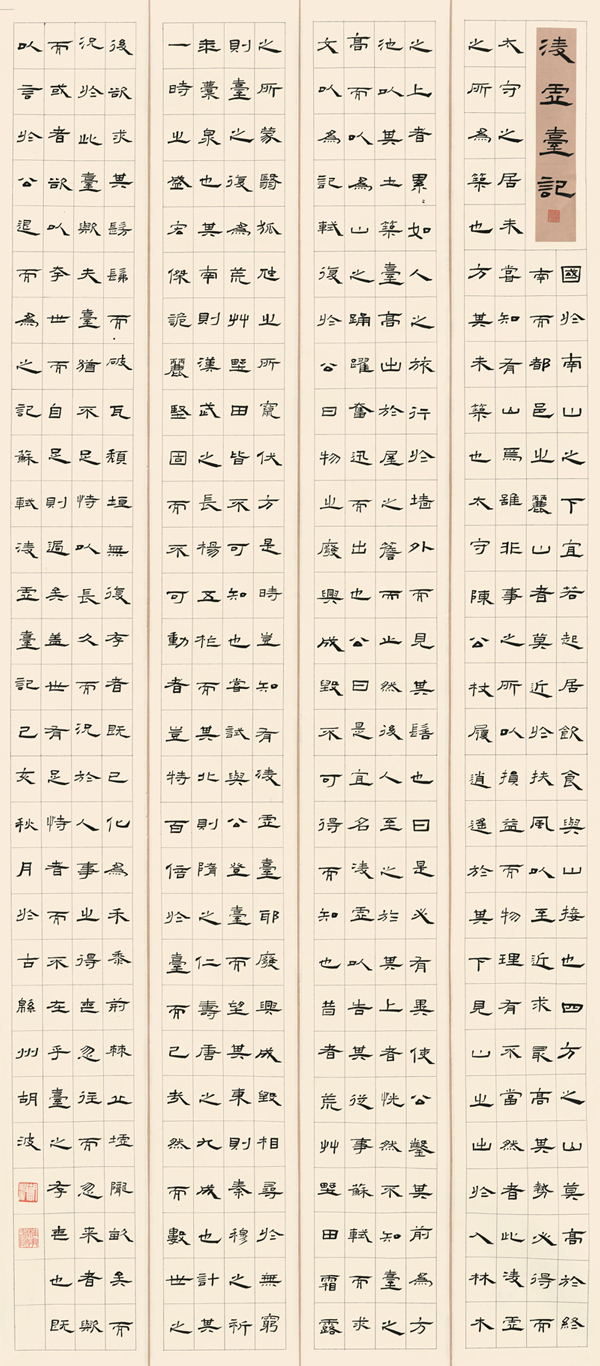 淩虛臺記
國於南山之下宜若起居飲食與山接也四方之山莫高於終
南而都邑之麗山者莫近於扶風以至近求最高其勢必得而
太守之居未嘗知有山焉雖非事之所以損益而物理有不當然者此淩虛
之所為築也方其未築也太守陳公杖履逍遙於其下見山之出於入林木
之上者累〻如人之旅行於墻外而見其髻也曰是必有異使公鑿其前為方
池以其土築臺高出於屋之簷而止然後人至之於其上者恍然不知臺之
高而以為山之踊躍奮迅而出也公曰是宜名淩虛以告其從事蘇軾而求
文以為記軾復於公曰物之廢興成毀不可得而知也昔者荒艸野田霜露
之所蒙翳狐虺之所竄伏方是時豈知有淩虛臺耶廢興成毀相尋於無窮
則臺之復為荒艸野田皆不可知也嘗試與公登臺而望其東則秦穆之祈
年橐泉也其南則漢武之長楊五柞而其北則隋之仁壽唐之九成也計其
一時之盛宏傑詭麗堅固而不可動者豈特百倍於臺而已哉然而數世之
後欲求其髣髴而破瓦頹垣無復存者既已化為禾黍荊棘丘墟隴畝矣而
況於此臺歟夫臺猶不足恃以長久而況於人事之得喪忽往而忽来者歟
而或者欲以夸世而自足則過矣蓋世有足恃者而不在乎臺之存亡也既
以言於公退而為之記蘇軾淩虛臺記己亥秋月於古緜州胡波